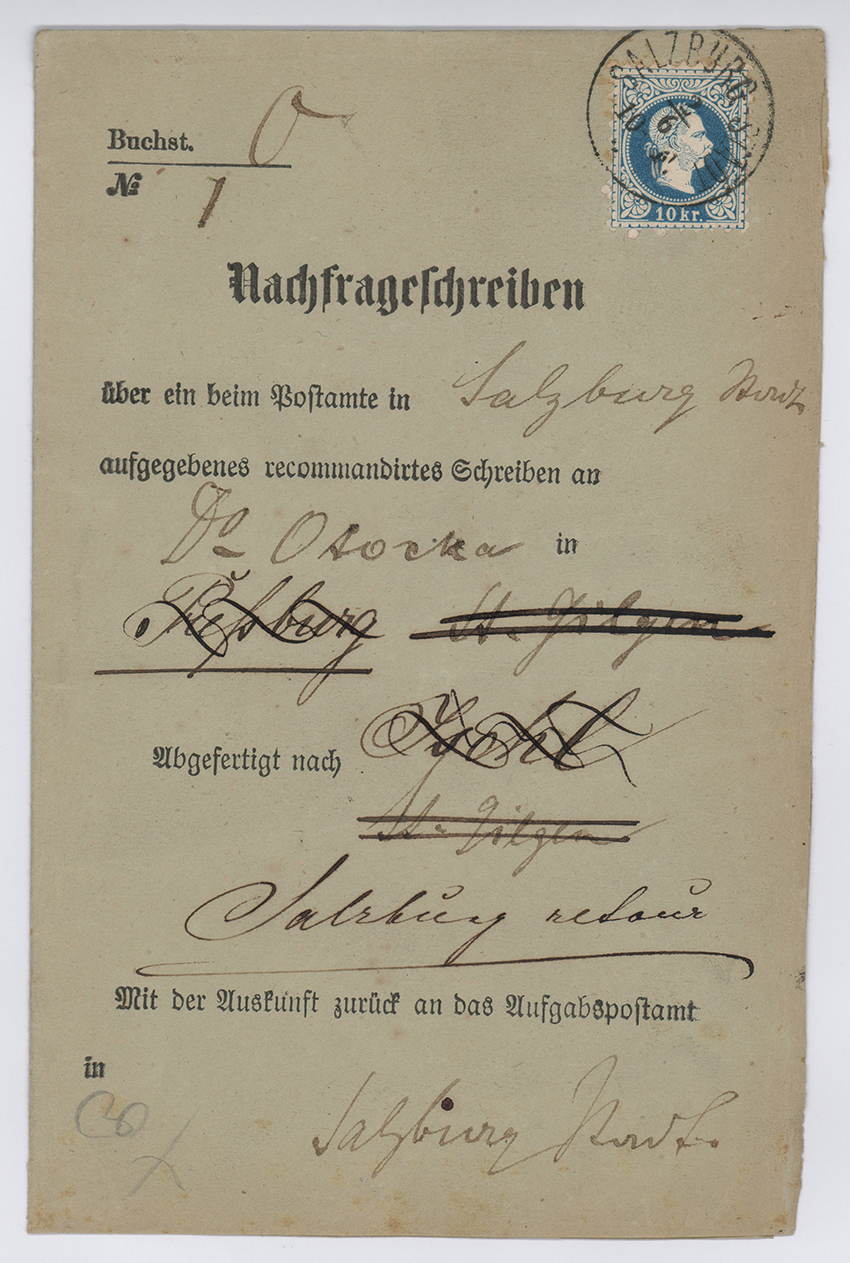 SALZBURG STADT
10 kr.
Buchst. O
№ 1
Nachfrageschreiben
über ein beim Postamte in Salzburg Stadt
aufgegebenes recommandirtes Schreiben an
Dr Otocka in
Preßburg St. Gilgen
Abgefertigt nach Ischl
St. Gilgen
Salzburg retour
Mit der Auskunft zurück an das Aufgabspostamt
in
Salzburg Stadt.